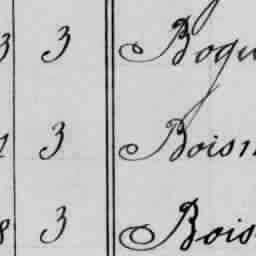 3 3 Bogu
1 3 Boisn
8 3 Bois